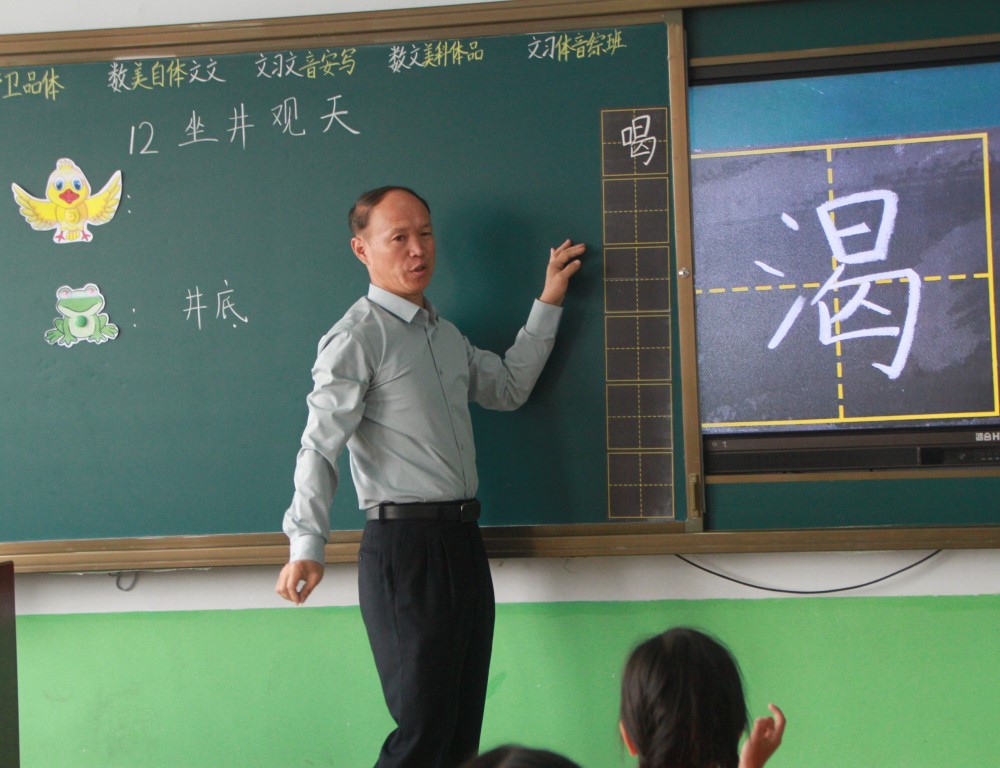 卫品体 数美自体文文 文习文音安写 数文美科体品 文习体音综班
12 坐井观天
喝
渴
:
: 井底
鸿合H